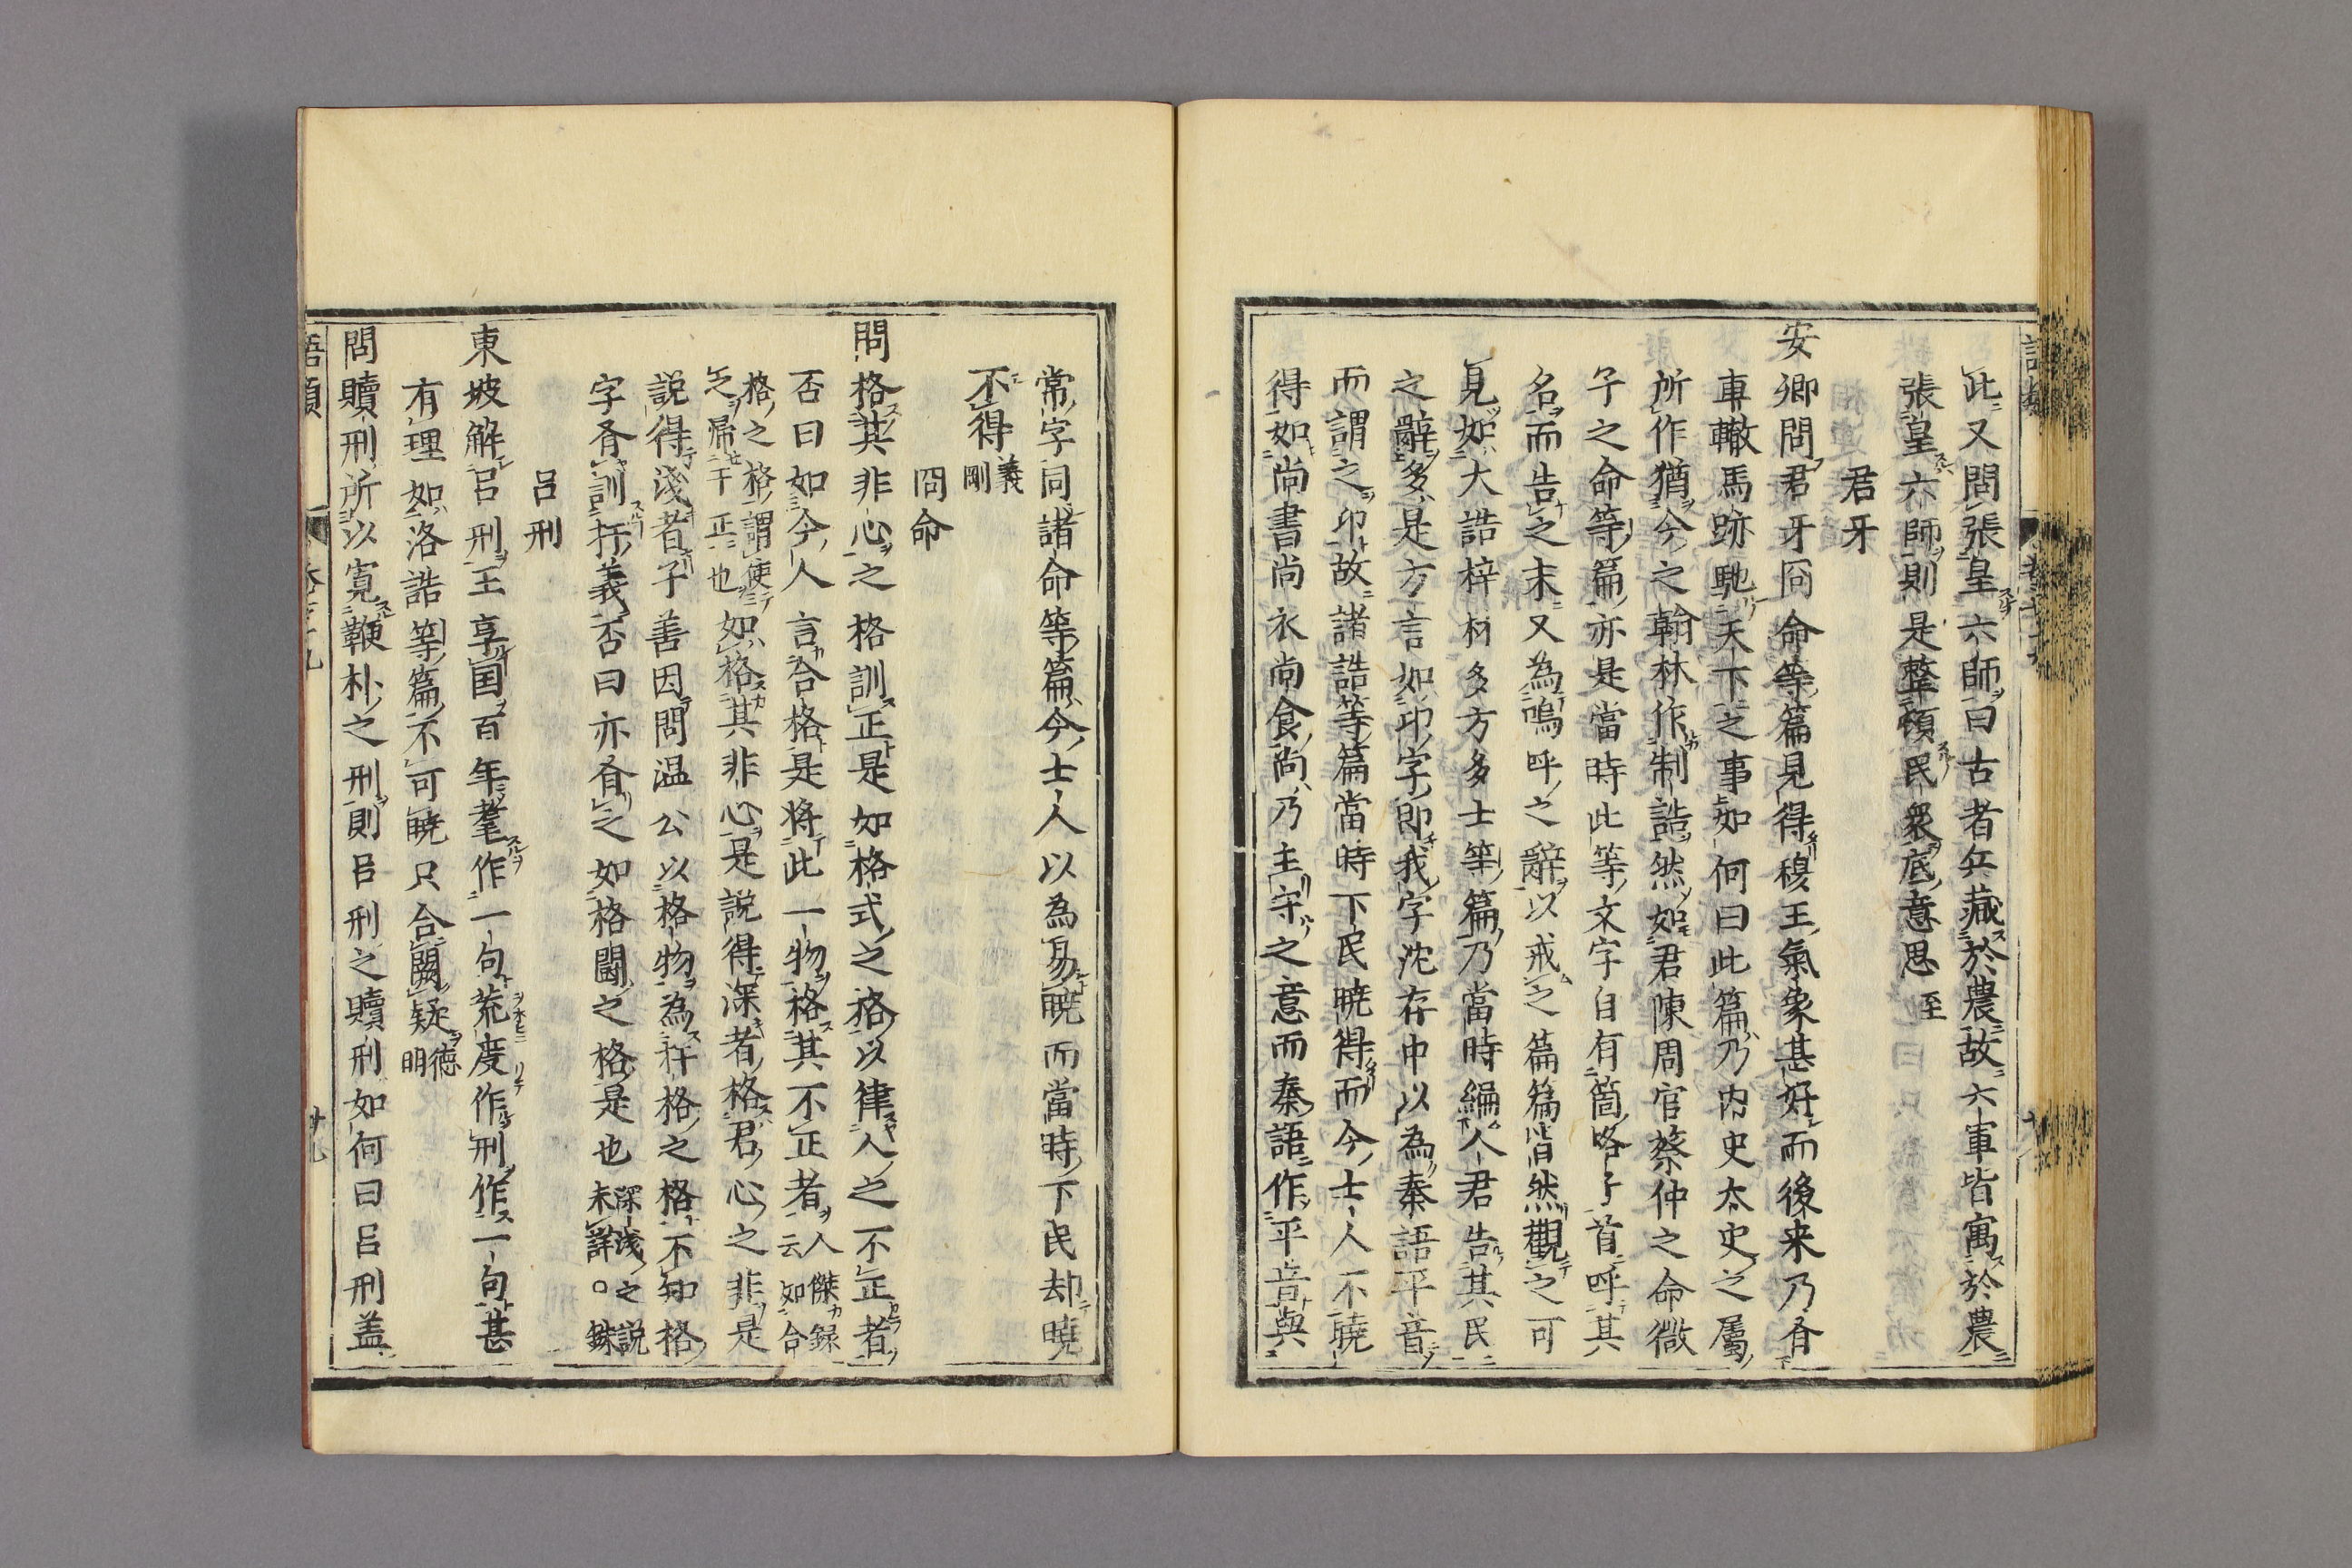 此又問張皇六師曰古者兵藏於農故六軍皆寓於農
張皇六師則是整頓民衆底意思 至
君牙
安卿問君牙冏命等篇見得穆王氣象甚好而後来乃有
車轍馬跡馳天下之事如何曰此篇乃内史太史之屬
所作猶今之翰林作制誥然如君陳周官蔡仲之命微
子之命等篇亦是當時此等文字自有箇格子首呼其
名而告之末又為嗚呼之辭以戒之篇篇皆然觀之可
見如大誥梓材多方多士等篇乃當時編人君告其民
之辭多是方言如卬字即我字沈存中以為秦語平音
而謂之卬故諸誥等篇當時下民暁得而今士人不暁
得如尚書尚衣尚食尚乃主守之意而秦語作平音與
常字同諸命等篇今士人以為易暁而當時下民却暁
不得 義剛
冏命
問格其非心之格訓正是如格式之格以律人之不正者
否曰如今人言合格是将此一物格其不正者 人傑録云如合
格之格謂使之帰于正也 如格其非心是説得深者格君心之非是
説得淺者子善因問温公以格物為扞格之格不知格
字有訓扞義否曰亦有之如格闘之格是也 深淺之説未詳○銖
呂刑
東坡解呂刑王享国百年耄作一句荒度作刑作一句甚
有理如洛誥等篇不可暁只合闕疑 徳明
問贖刑所以寛鞭朴之刑則呂刑之贖刑如何曰呂刑盖
語類